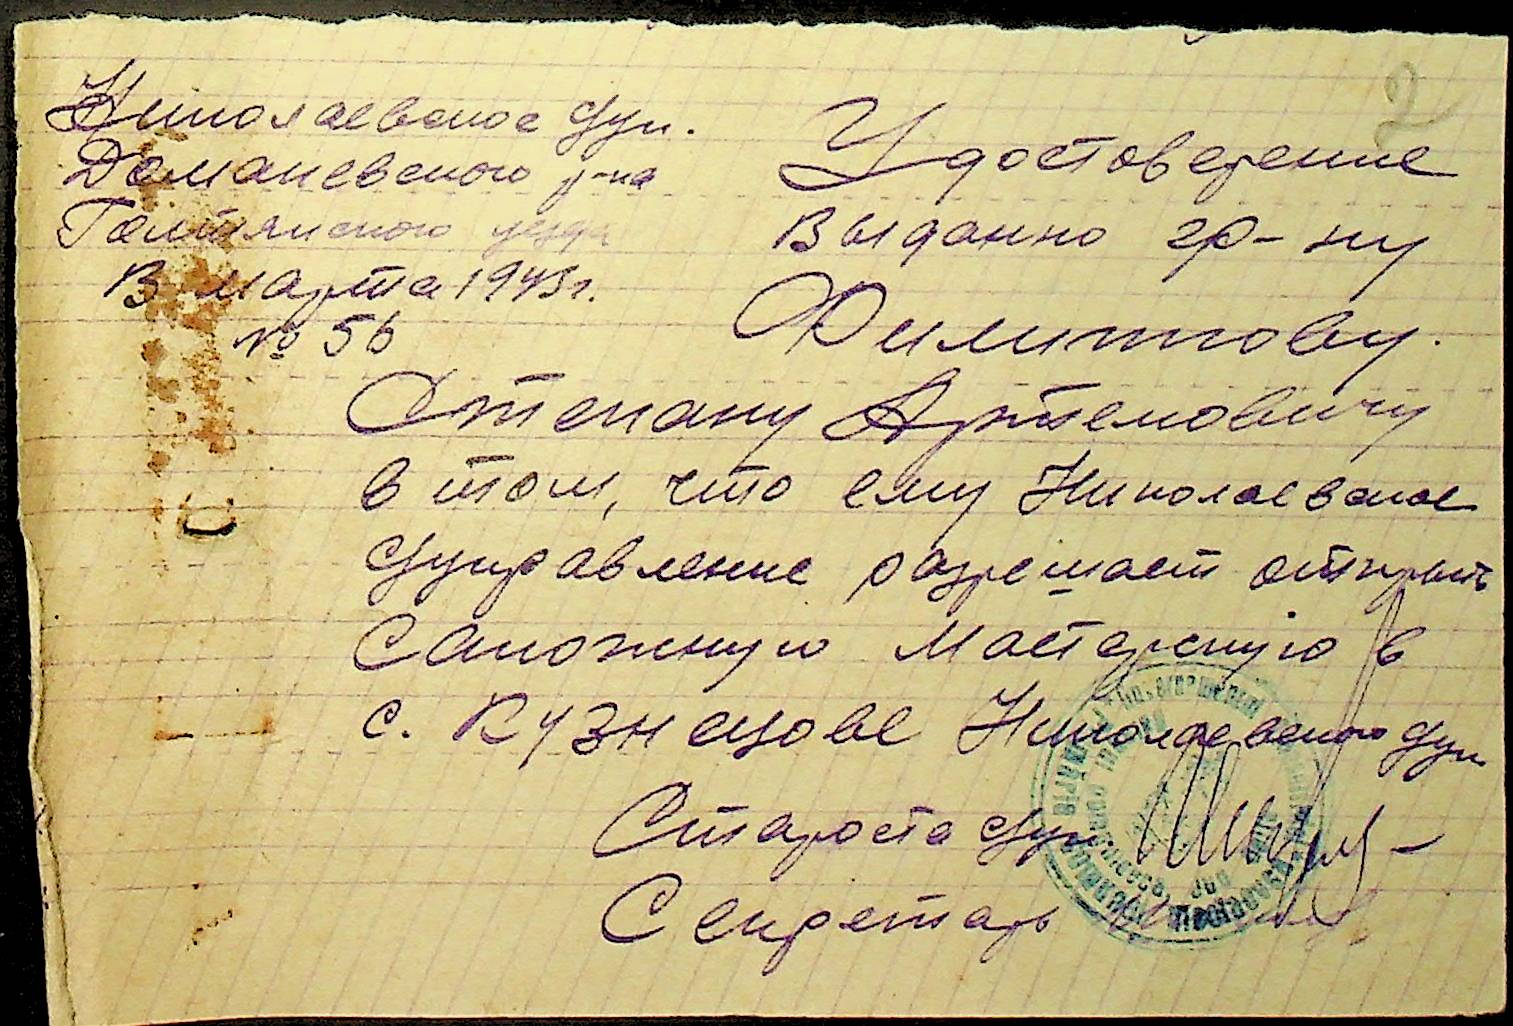 2
Николаевское суп.
Доманевского р-на
Голтянского уезда
В марта 1943 г.
№ 56
Удостоверение
Выданно гр-ну
Филиппову.
Степану Артемовичу
в том, что ему Николаевское
суправление разрешает открыть
сапожную мастерскую в
с. Кузнецове Николаевского суп.
Староста суп
Секретарь